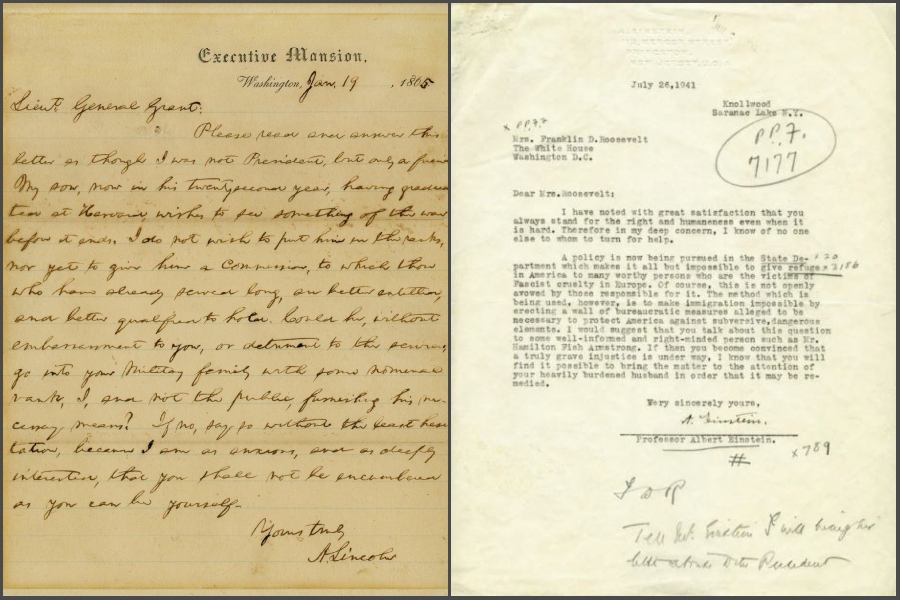 Executive Mansion,
Washington, Jan. 19, 1865
Lieut. General Grant:
Please read and answer this
letter as though I was not President, but only a frien
My son, now in his twenty second year, having gradua
ted at Harvard, wishes to see something of the war
before it ends. I do not wish to put him in the ranks,
nor yet to give him a commission, to which those
who have already served long, are better entitled,
and better qualified to hold. Could he, without
embarrassment to you, or detriment to the service,
go into your Military family with some nominal
rank, I, and not the public, furnishing his ne-
cessary means? If no, say so without the least hesi
tation, because I am as anxious, and as deeply
interested, that you shall not be encumbered
as you can be yourself.
Yours truly
A. Lincoln
July 26,1941
Knollwood
Saranac Lake N.Y.
x P.P.F.
P.P.F.
7177
Mrs. Franklin D.Roosevelt
The White House
Washington D.C.
Dear Mrs.Roosevelt:
I have noted with great satisfaction that you
always stand for the right and humaneness even when it
is hard. Therefore in my deep concern, I know of no one
else to whom to turn for help.
A policy is now being pursued in the State De- x20
partment which makes it all but impossible to give refuge x3186
in America to many worthy persons who are the victims of
Fascist cruelty in Europe. Of course, this is not openly
avowed by those responsible for it. The method which is
being used, however, is to make immigration impossible by
erecting a wall of bureaucratic measures alleged to be
necessary to protect America against subversive,dangerous
elements. I would suggest that you talk about this question
to some well-informed and right-minded person such as Mr.
Hamilton Fish Armstrong. If then you become convinced that
a truly grave injustice is under way, I know that you will
find it possible to bring the matter to the attention of
your heavily burdened husband in order that it may be re-
medied.
Very sincerely yours,
A. Einstein.
Professor Albert Einstein.
# x789
FDR
Tell Mr. Einstein I will bring his
letter at once to the President